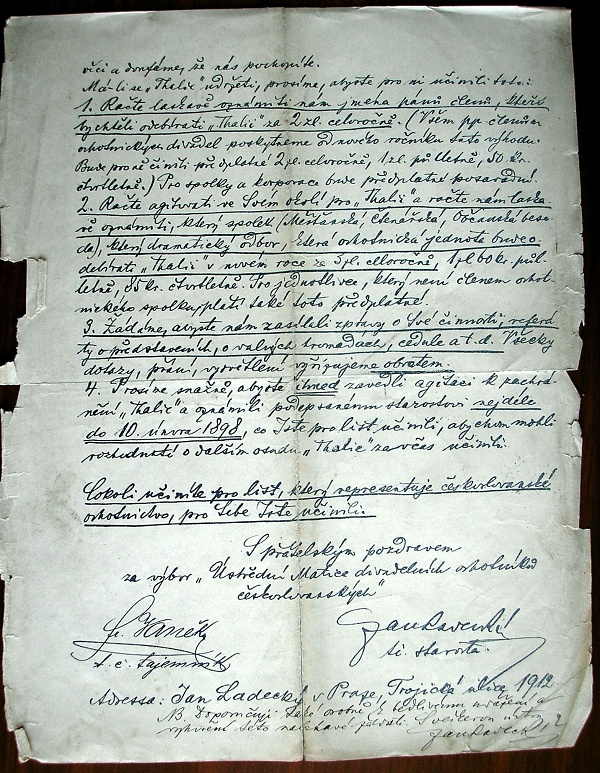 věci a doufáme, že nás pochopíte.
Má-li se „Thalie" udržeti, prosíme, abyste pro ni učinili toto:
1. Račte laskavě oznámiti nám jména pánů členů, kteří
by chtěli odebírati „Thalii" za 2 zl. celoročně. (Všem pp. členům
ochotnických divadel poskytneme od nového ročníku tuto výhodu.
Bude pro ně činiti předplatné 2 zl. celoročně, 1 zl. půlletně, 50 kr.
čtvrtletně.) Pro spolky a korporace bude předplatné posavadní.
2. Račte agitvati ve Svém okolí pro „Thalii" a račte nám laska-
vě oznámiti, který spolek (Měšťanská, Čtenářská, Občanská bese-
da), který dramatický odbor, která ochotnická jednota bude o-
debírati „Thalii" v novém roce za 3 zl. celoročně, 1 zl. 60 kr. půl-
letně, 85 kr. čtvrtletně. Pro jednotlivce, který není členem ochot-
nického spolku, platí také toto předplatné.
3. Žádáme, abyste nám zasílali zprávy o Své činnosti, referá-
ty o představeních, o valných hromadách, cedule a t. d. Všecky
dotazy, přání, vysvětlení vyřizujeme obratem.
4. Prosíme snažně, abyste ihned zavedli agitaci k zachrá-
nění „Thalie" a oznámili podepsanému starostovi nejdéle
do 10. února 1898, co Jste pro list učinili, abychom mohli
rozhodnouti o dalším osudu „Thalie" za včas učinili.
Cokoli učiníte pro list, který representuje českoslovanské
ochotnictvo, pro Sebe Jste učinili.
S přátelským pozdravem
za výbor „Ústřední Matice divadelních ochotníků
českoslovanských"
t. č. tajemník
t. č. starosta.
Adressa: Jan Ladecký v Praze, Trojická ulice 1912
NB. Doporučuji také osobně k bedlivému uvážení a